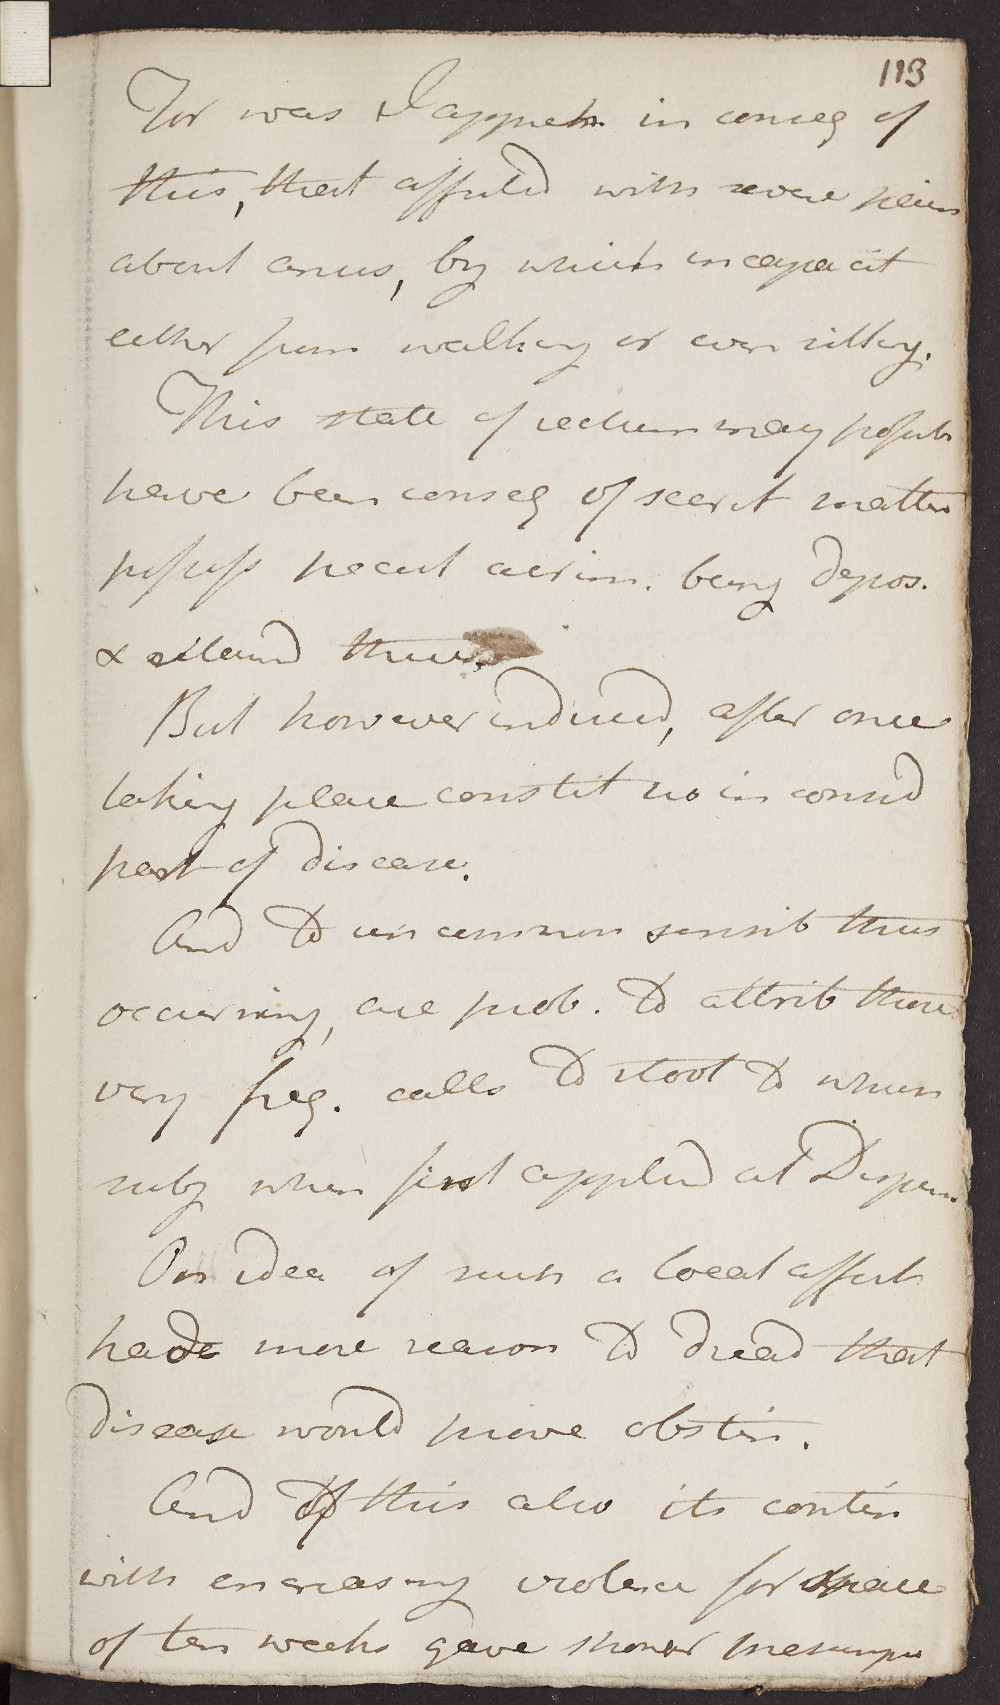 113
For was I appreh in conseq of
this, that afflicted with severe pain
about anus, by which incapacit
either from walking or even sitting.
This state of rectum may possib
have been conseq of secret matter
possess pecul acrim. being depos.
& retained there.
But however induced, after once
taking place constit no in consid
part of disease.
And to uncommon sensib thus
occurring, are prob. to attrib those
very freq. calls to stool to which
subj when first applied at Dispens
On idea of such a local affect
had more reason to dread that
disease would prove obstin.
And of this also its contin
with encreasing violence for space
of ten weeks gave strong presump